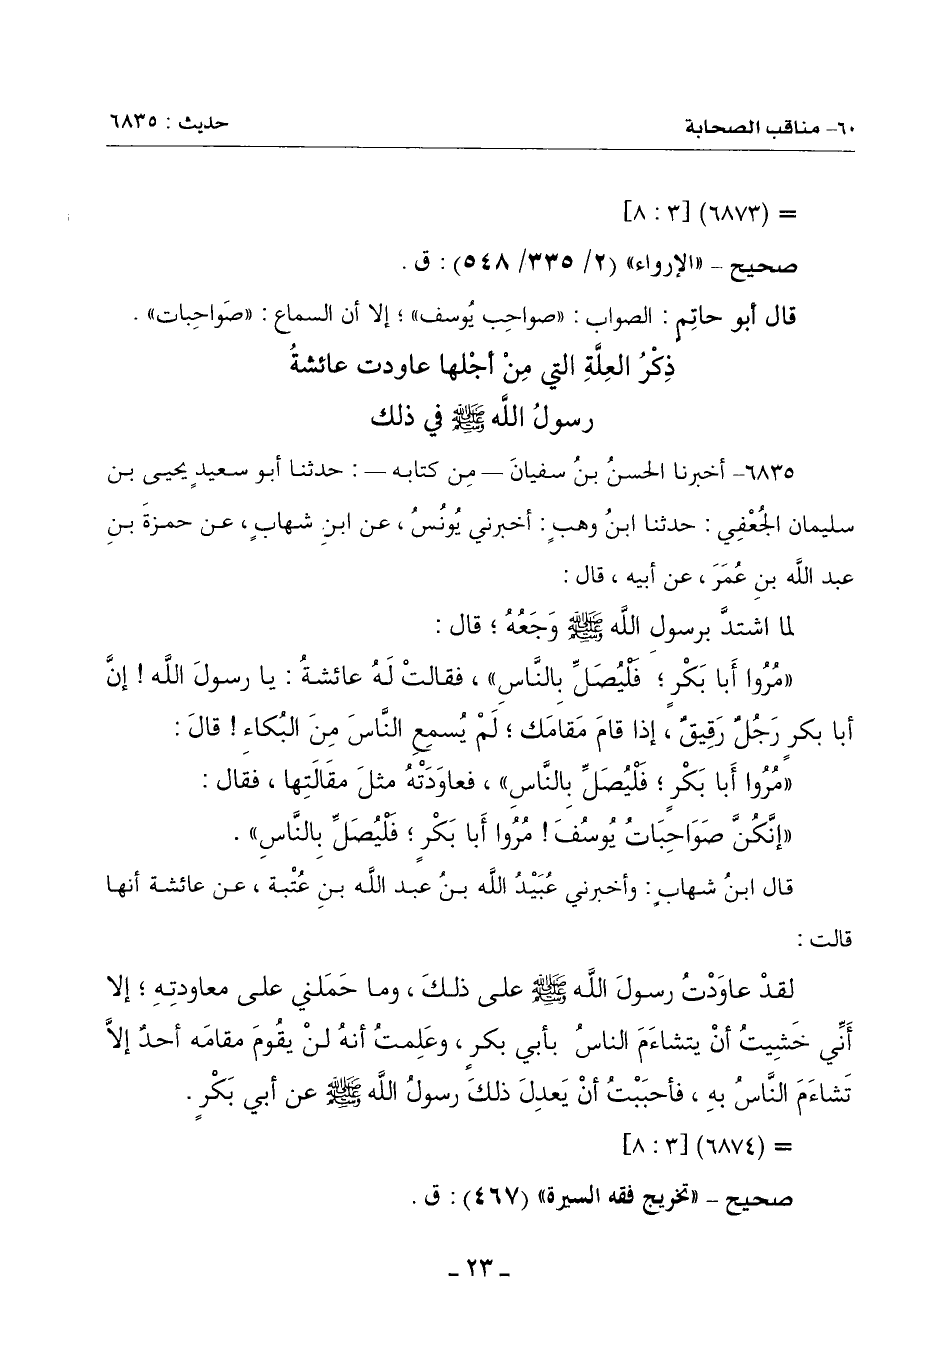 ٦٠- مناقب الصحابة حديث : ٦٨٣٥
= (٦٨٧٣) [٣ : ٨]
صحيح – «الإرواء» (٢/ ٣٣٥/ ٥٤٨) : ق .
قال أبو حاتِمٍ : الصواب : «صواحِب يُوسف» ؛ إلا أن السماع : «صَواحِبات» .
ذِكْرُ العِلَّةِ التي مِنْ أجْلها عاودت عائشةُ
رسولُ اللَّه ﷺ في ذلك
٦٨٣٥- أخبرنا الحسنُ بنُ سفيانَ — مِن كتابه — : حدثنا أبو سعيدٍ يحيى بن
سليمان الجُعْفِي : حدثنا ابنُ وهبٍ : أخبرني يُونُسُ ، عن ابنِ شهابٍ ، عن حمزةَ بنِ
عبد اللَّه بنِ عُمَرَ ، عن أبيه ، قال :
لما اشتدَّ برسولِ اللَّه ﷺ وَجَعُهُ ؛ قال :
«مُرُوا أَبا بَكْرٍ ؛ فَلْيُصَلِّ بالنَّاسِ» ، فقالتْ لَهُ عائشةُ : يا رسولَ اللَّه ! إنَّ
أبا بكرٍ رَجُلٌ رَقِيقٌ ، إذا قامَ مَقامَك ؛ لَمْ يُسمعِ النَّاسَ مِنَ البُكاء ! قالَ :
«مُرُوا أَبا بَكْرٍ ؛ فَلْيُصَلِّ بالنَّاسِ» ، فعاوَدَتْهُ مثلَ مقالَتِها ، فقال :
«إنَّكُنَّ صَوَاحِبَاتُ يُوسُفَ ! مُرُوا أَبا بَكْرٍ ؛ فَلْيُصَلِّ بِالنَّاسِ» .
قال ابنُ شهابٍ : وأخبرني عُبَيْدُ اللَّه بنُ عبد اللَّه بنِ عُتْبة ، عن عائشة أنها
قالت :
لقدْ عاوَدْتُ رسولَ اللَّه ﷺ على ذلكَ ، وما حَمَلني على معاودتِهِ ؛ إلا
أَنِّي خَشِيتُ أنْ يتشاءَمَ الناسُ بأبي بكرٍ ، وعَلِمتُ أنهُ لنْ يقُومَ مقامَه أحدٌ إلاَّ
تَشاءَمَ النَّاسُ بهِ ، فأحبَبْتُ أنْ يَعدِلَ ذلكَ رسولُ اللَّه ﷺ عن أبي بَكْرٍ .
= (٦٨٧٤) [٣ : ٨]
صحيح – «تخريج فقه السيرة» (٤٦٧) : ق .
ـ ٢٣ ـ